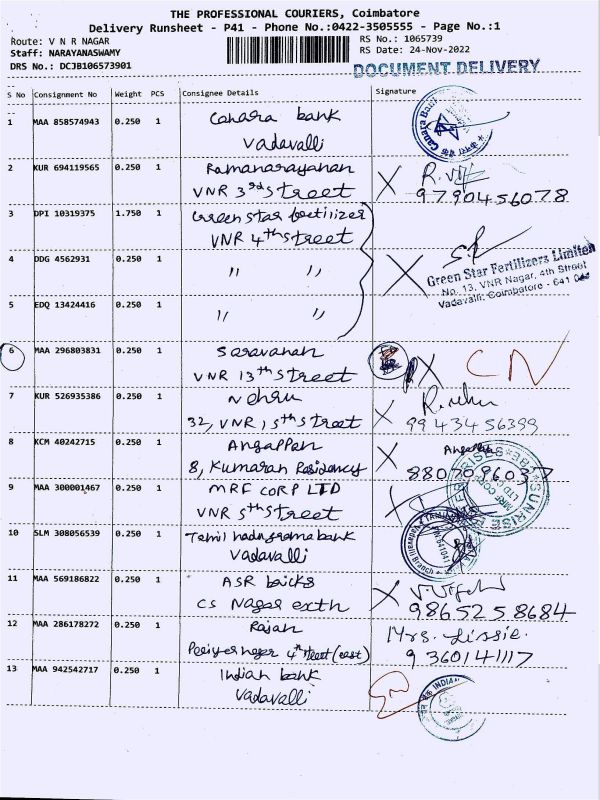 THE PROFESSIONAL COURIERS, Coimbatore
Delivery Runsheet - P41 - Phone No.:0422-3505555 - Page No.:1
Route: V N R NAGAR
RS No.: 1065739
Staff: NARAYANASWAMY
RS Date: 24-Nov-2022
DRS No.: DCJB106573901
DOCUMENT DELIVERY
S No Consignment No Weight PCS Consignee Details Signature
1 MAA 858574943 0.250 1 Canara bank
Vadavalli
Canara Bank
2 KUR 694119565 0.250 1 Ramanarayanan
VNR 3rd Street
9790456078
3 DPI 10319375 1.750 1 Green star fertilizer
VNR 4th Street
4 DDG 4562931 0.250 1 " "
Green Star Fertilizers Limited
No. 13, VNR Nagar, 4th Street
Vadavalli, Coimbatore - 641
5 EDQ 13424416 0.250 1 " "
6 MAA 296803831 0.250 1 Saravanan
VNR 13th Street
CN
7 KUR 526935386 0.250 1 Nehru
32, VNR, 5th Street
99434 56399
8 KCM 40242715 0.250 1 Angappan
8, Kumaran Residency
8807096037
9 MAA 300001467 0.250 1 MRF CORP LTD
VNR 5th Street
MRF CORP
LTD
10 SLM 308056539 0.250 1 Tamil nadu grama bank
Vadavalli
Branch
11 MAA 569186822 0.250 1 ASR bricks
CS Nagar extn
9865258684
12 MAA 286178272 0.250 1 Rajan
Periyar nagar 4th street (east)
Mrs. Lissie.
9360141117
13 MAA 942542717 0.250 1 Indian bank
Vadavalli
INDIAN